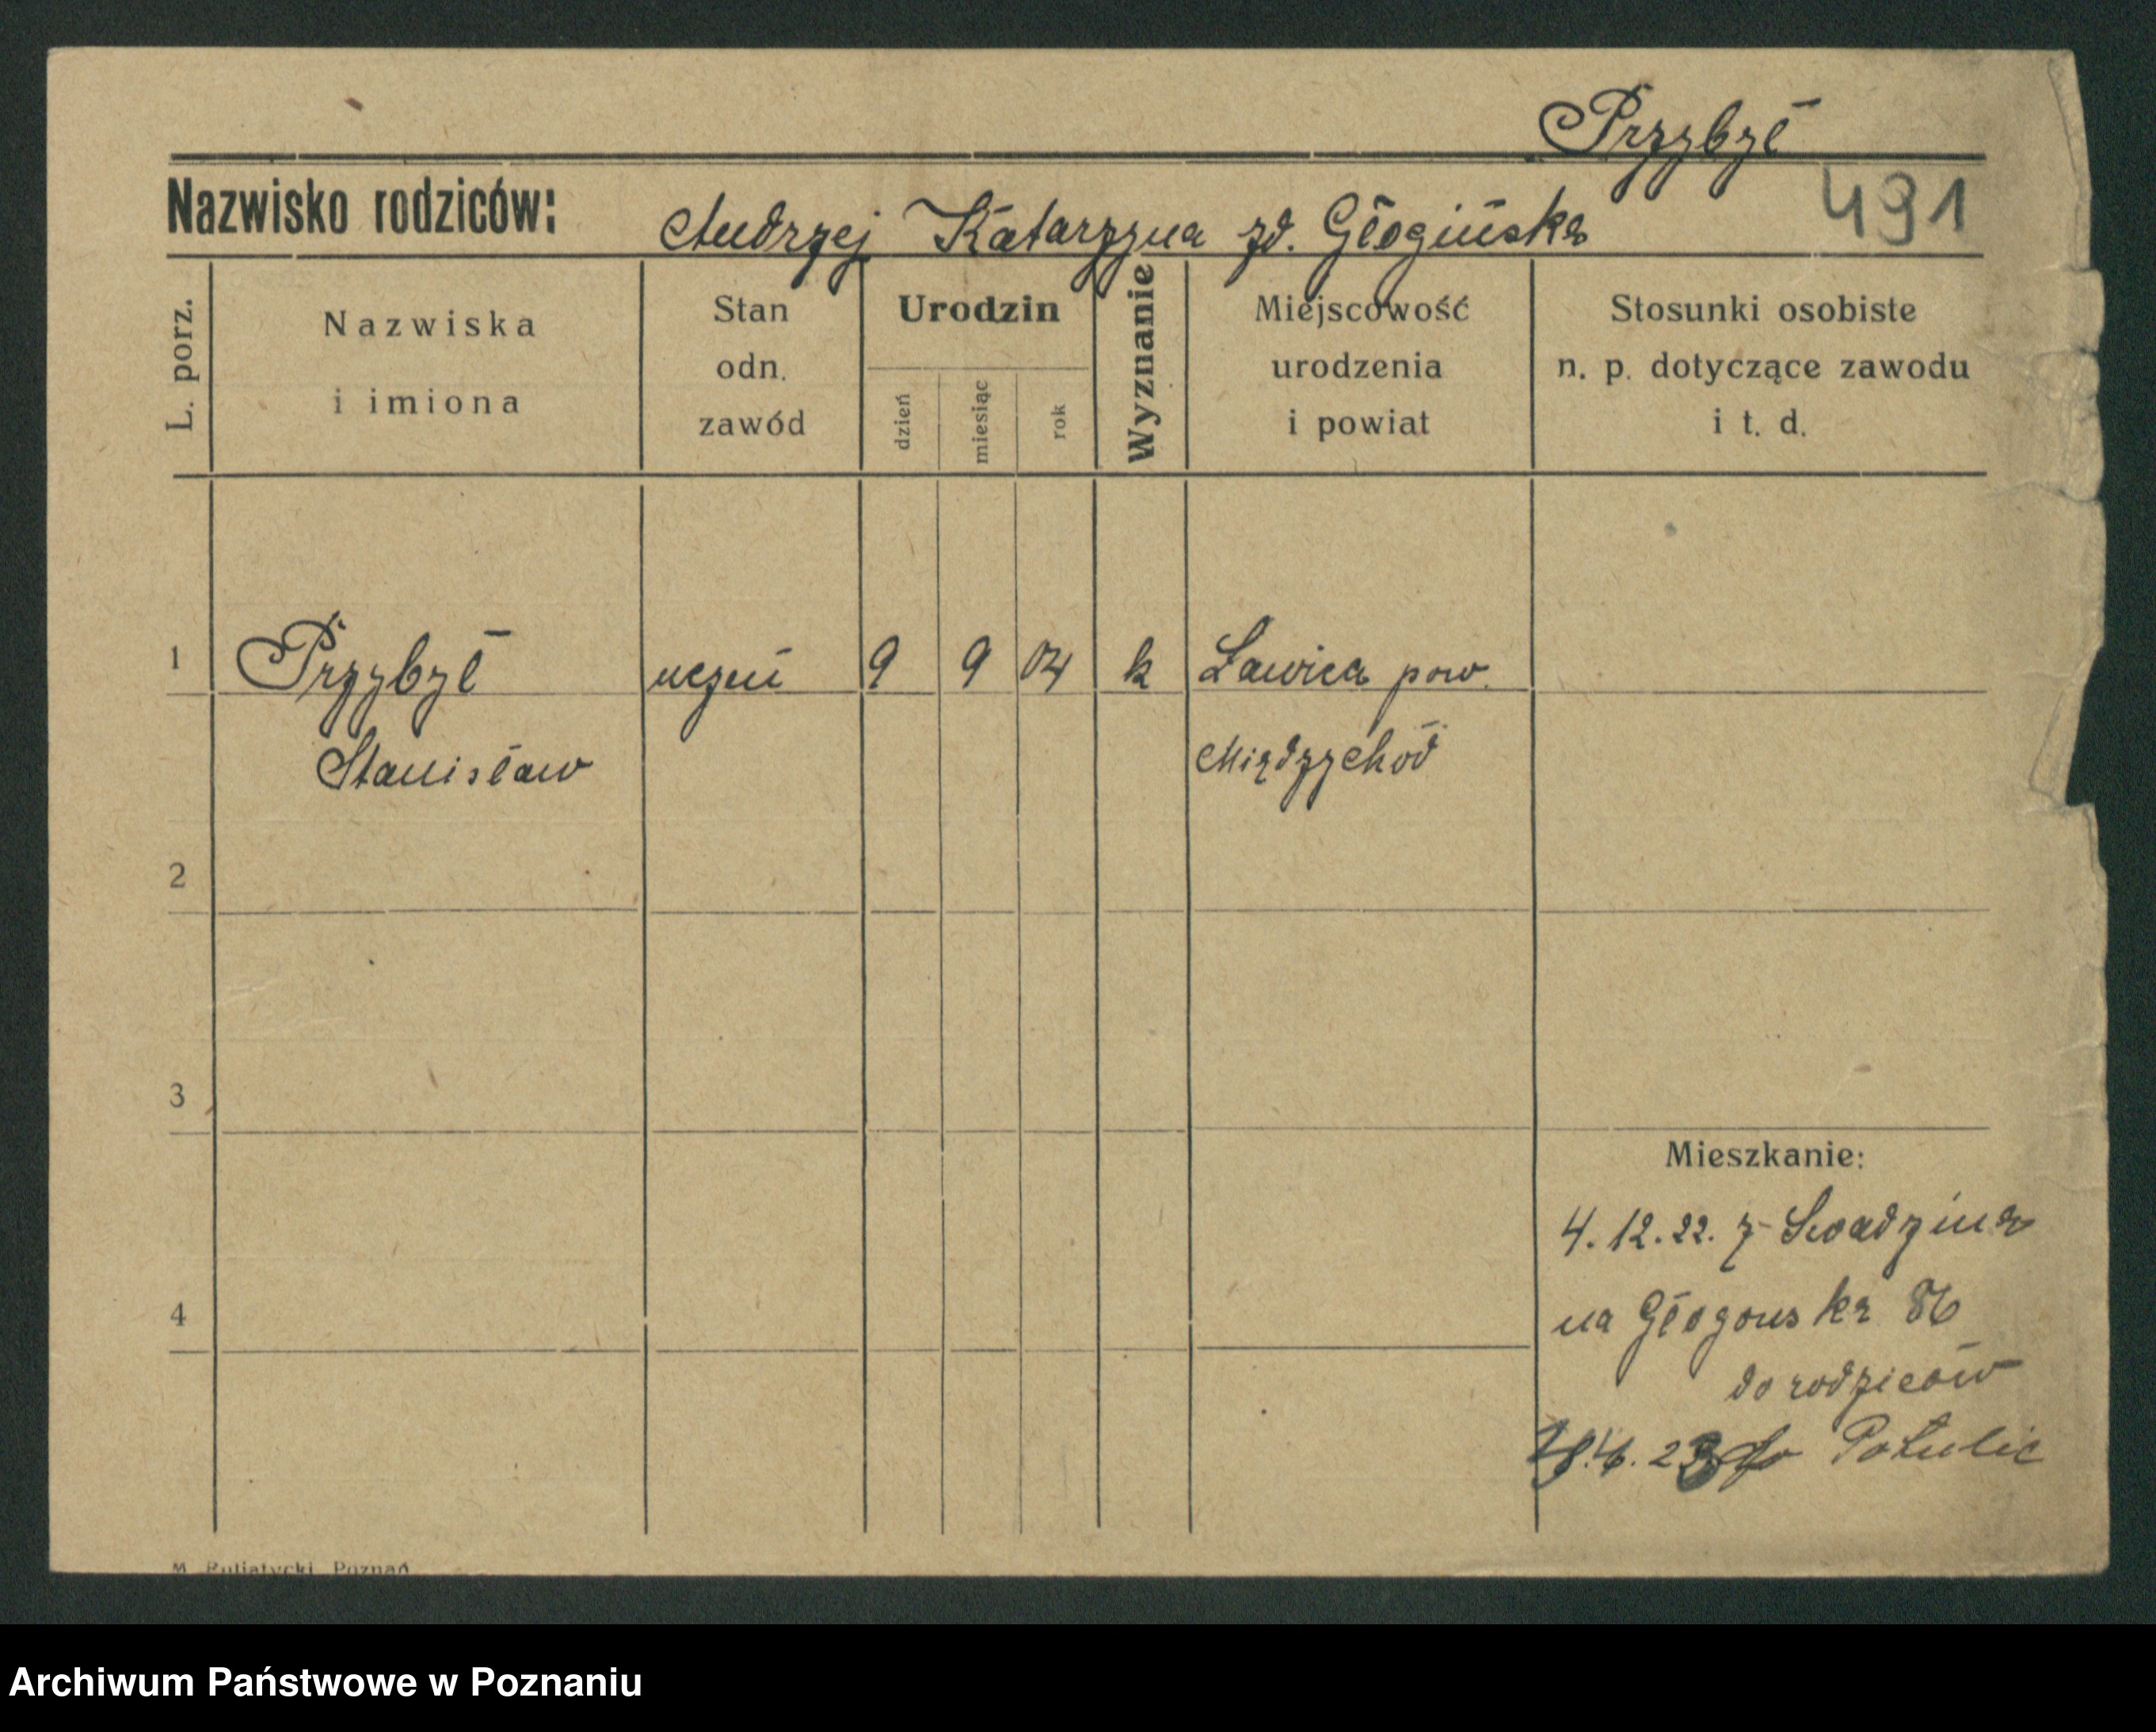 Przybył
491
Nazwisko rodziców: Andrzej Katarzyna zd. Głogińska
L. porz.
Nazwiska
i imiona
Stan
odn.
zawód
Urodzin
dzień
miesiąc
rok
Wyznanie
Miejscowość
urodzenia
i powiat
Stosunki osobiste
n. p. dotyczące zawodu
i t. d.
1 Przybył uczeń 9 9 04 k Ławica pow.
Stanisław Międzychód
2
3
Mieszkanie:
4.12.22. z Swadzima
4
na Głogowską 86
do rodziców
4. 23 do Potulic
Poznań
Archiwum Państwowe w Poznaniu